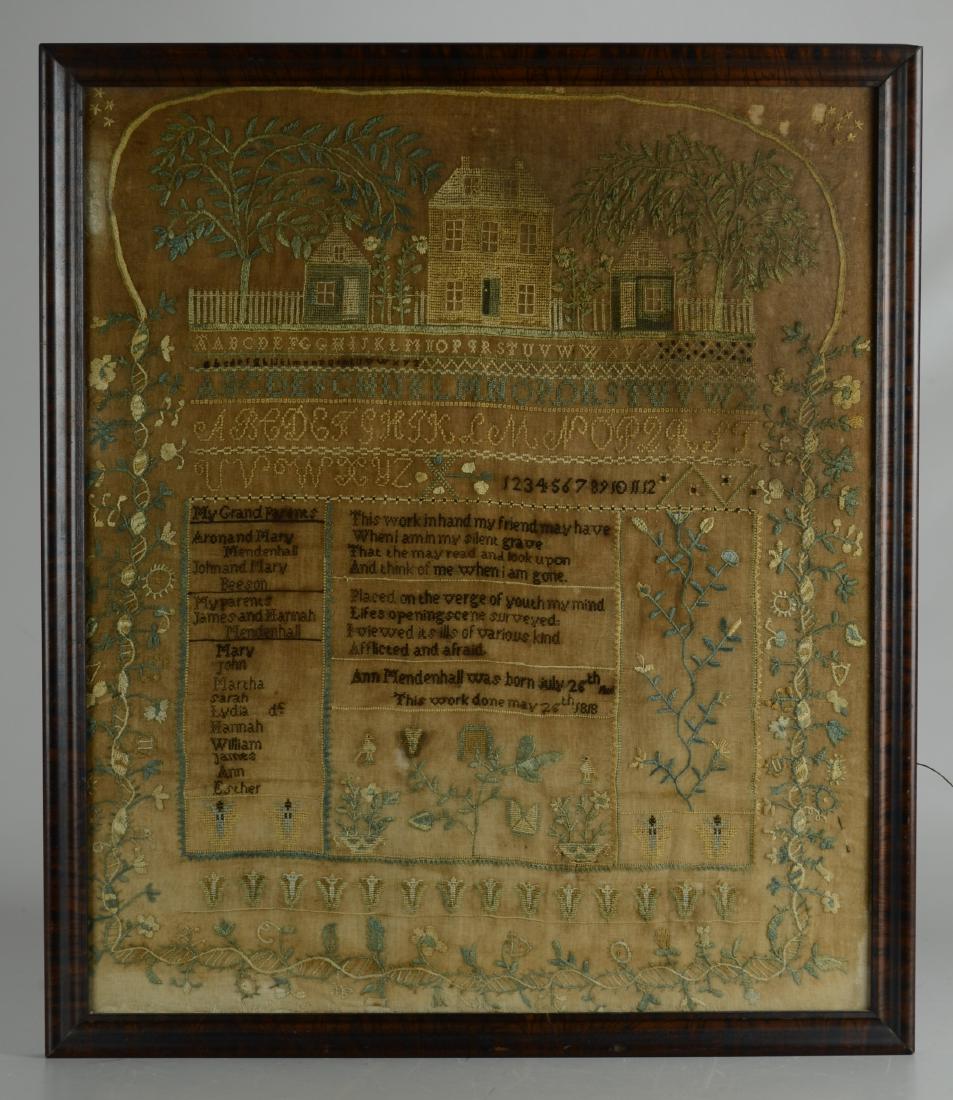 A B C D E F G G H I J K L M I O P Q R S T U V W X X Y Z
A B C D E F G H I J K L M N O P Q R S T U V W X
A B C D E F G H I K L M N O P Q R S T
U V W X Y Z
1 2 3 4 5 6 7 8 9 10 11 12
My Grand Parents
Aron and Mary
Mendenhall
John and Mary
Beeson
My parents
James and Hannah
Mendenhall
Mary
John
Martha
Sarah
Lydia
Hannah
William
James
Ann
Esther
This work in hand my friend may have
When i am in my silent grave
That the may read and look upon
And think of me when i am gone.
Placed on the verge of youth my mind
Lifes opening scene surveyed:
I viewed its ills of various kind
Afflicted and afraid.
Ann Mendenhall was born july 26th
This work done may 26th 1818